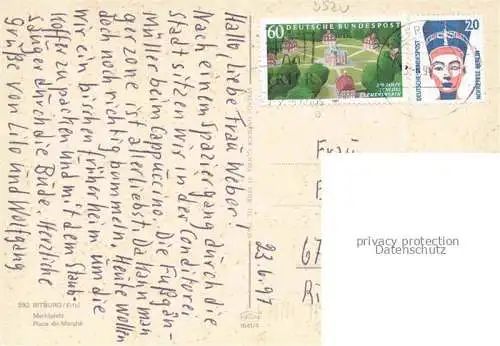 Hallo, liebe Frau Weber!
Nach einem Spaziergang durch die
Stadt sitzen wir in der Conditorei
Müller beim Cappuccino. Die Fußgän-
gerzone ist allerliebst. Da kann man
doch noch richtig bummeln. Heute wollen
wir ein bißchen früher heim um die
Koffer zu packen und mit dem Staub-
sauger durch die Bude. Herzliche
Grüße von Lilo und Wolfgang
592 BITBURG/Eifel
Marktplatz
Place du Marché
23.6.97
5520
60
DEUTSCHE BUNDESPOST
CLEMENSWERTH
20
DEUTSCHE BUNDESPOST
NOFRETETE BERLIN
Frau
67
privacy protection
Datenschutz